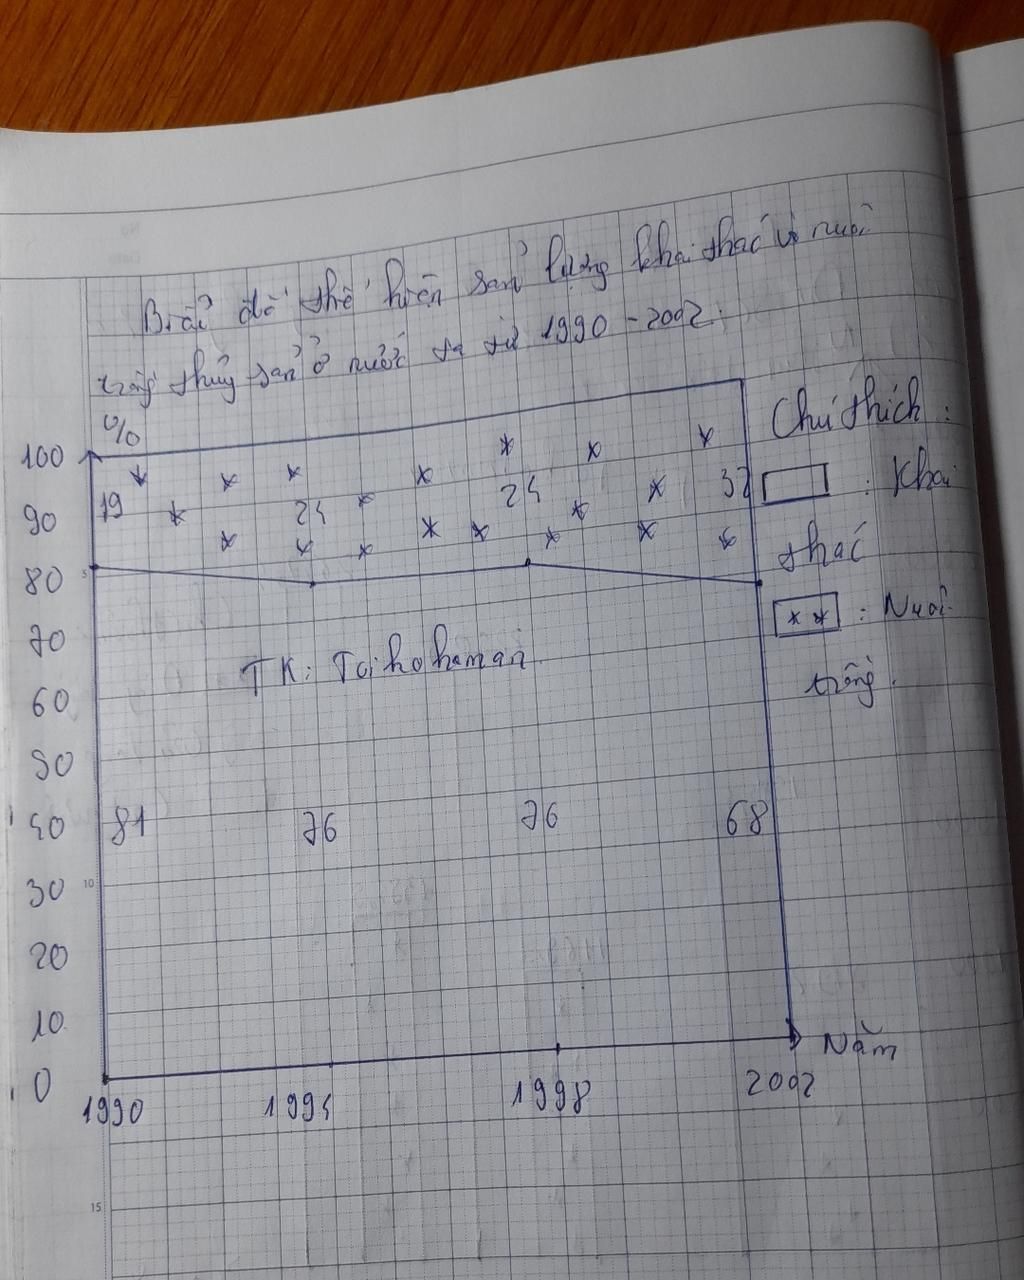 Biểu đồ thể hiện sản lượng khai thác và nuôi
trồng thủy sản ở nước ta từ 1990 - 2002.
%
Chú thích:
: Khai
thác
* * : Nuôi
trồng.
100
90
80
70
60
50
40
30
20
10
0
19
24
24
32
TK: Taihohaman
81
76
76
68
Năm
1990
1994
1998
2002
5
10
15